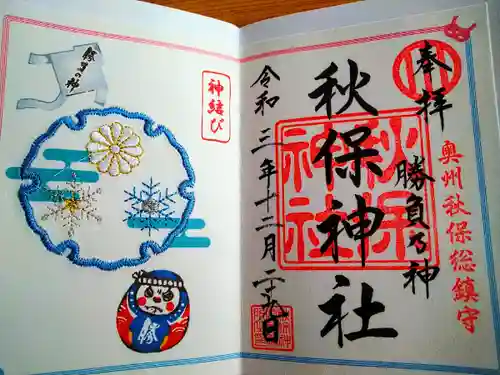 奉拝
勝負乃神
奥州秋保総鎮守
秋保神社
秋保
神社
令和三年十二月二十九日
神結び
勝負の神
勝